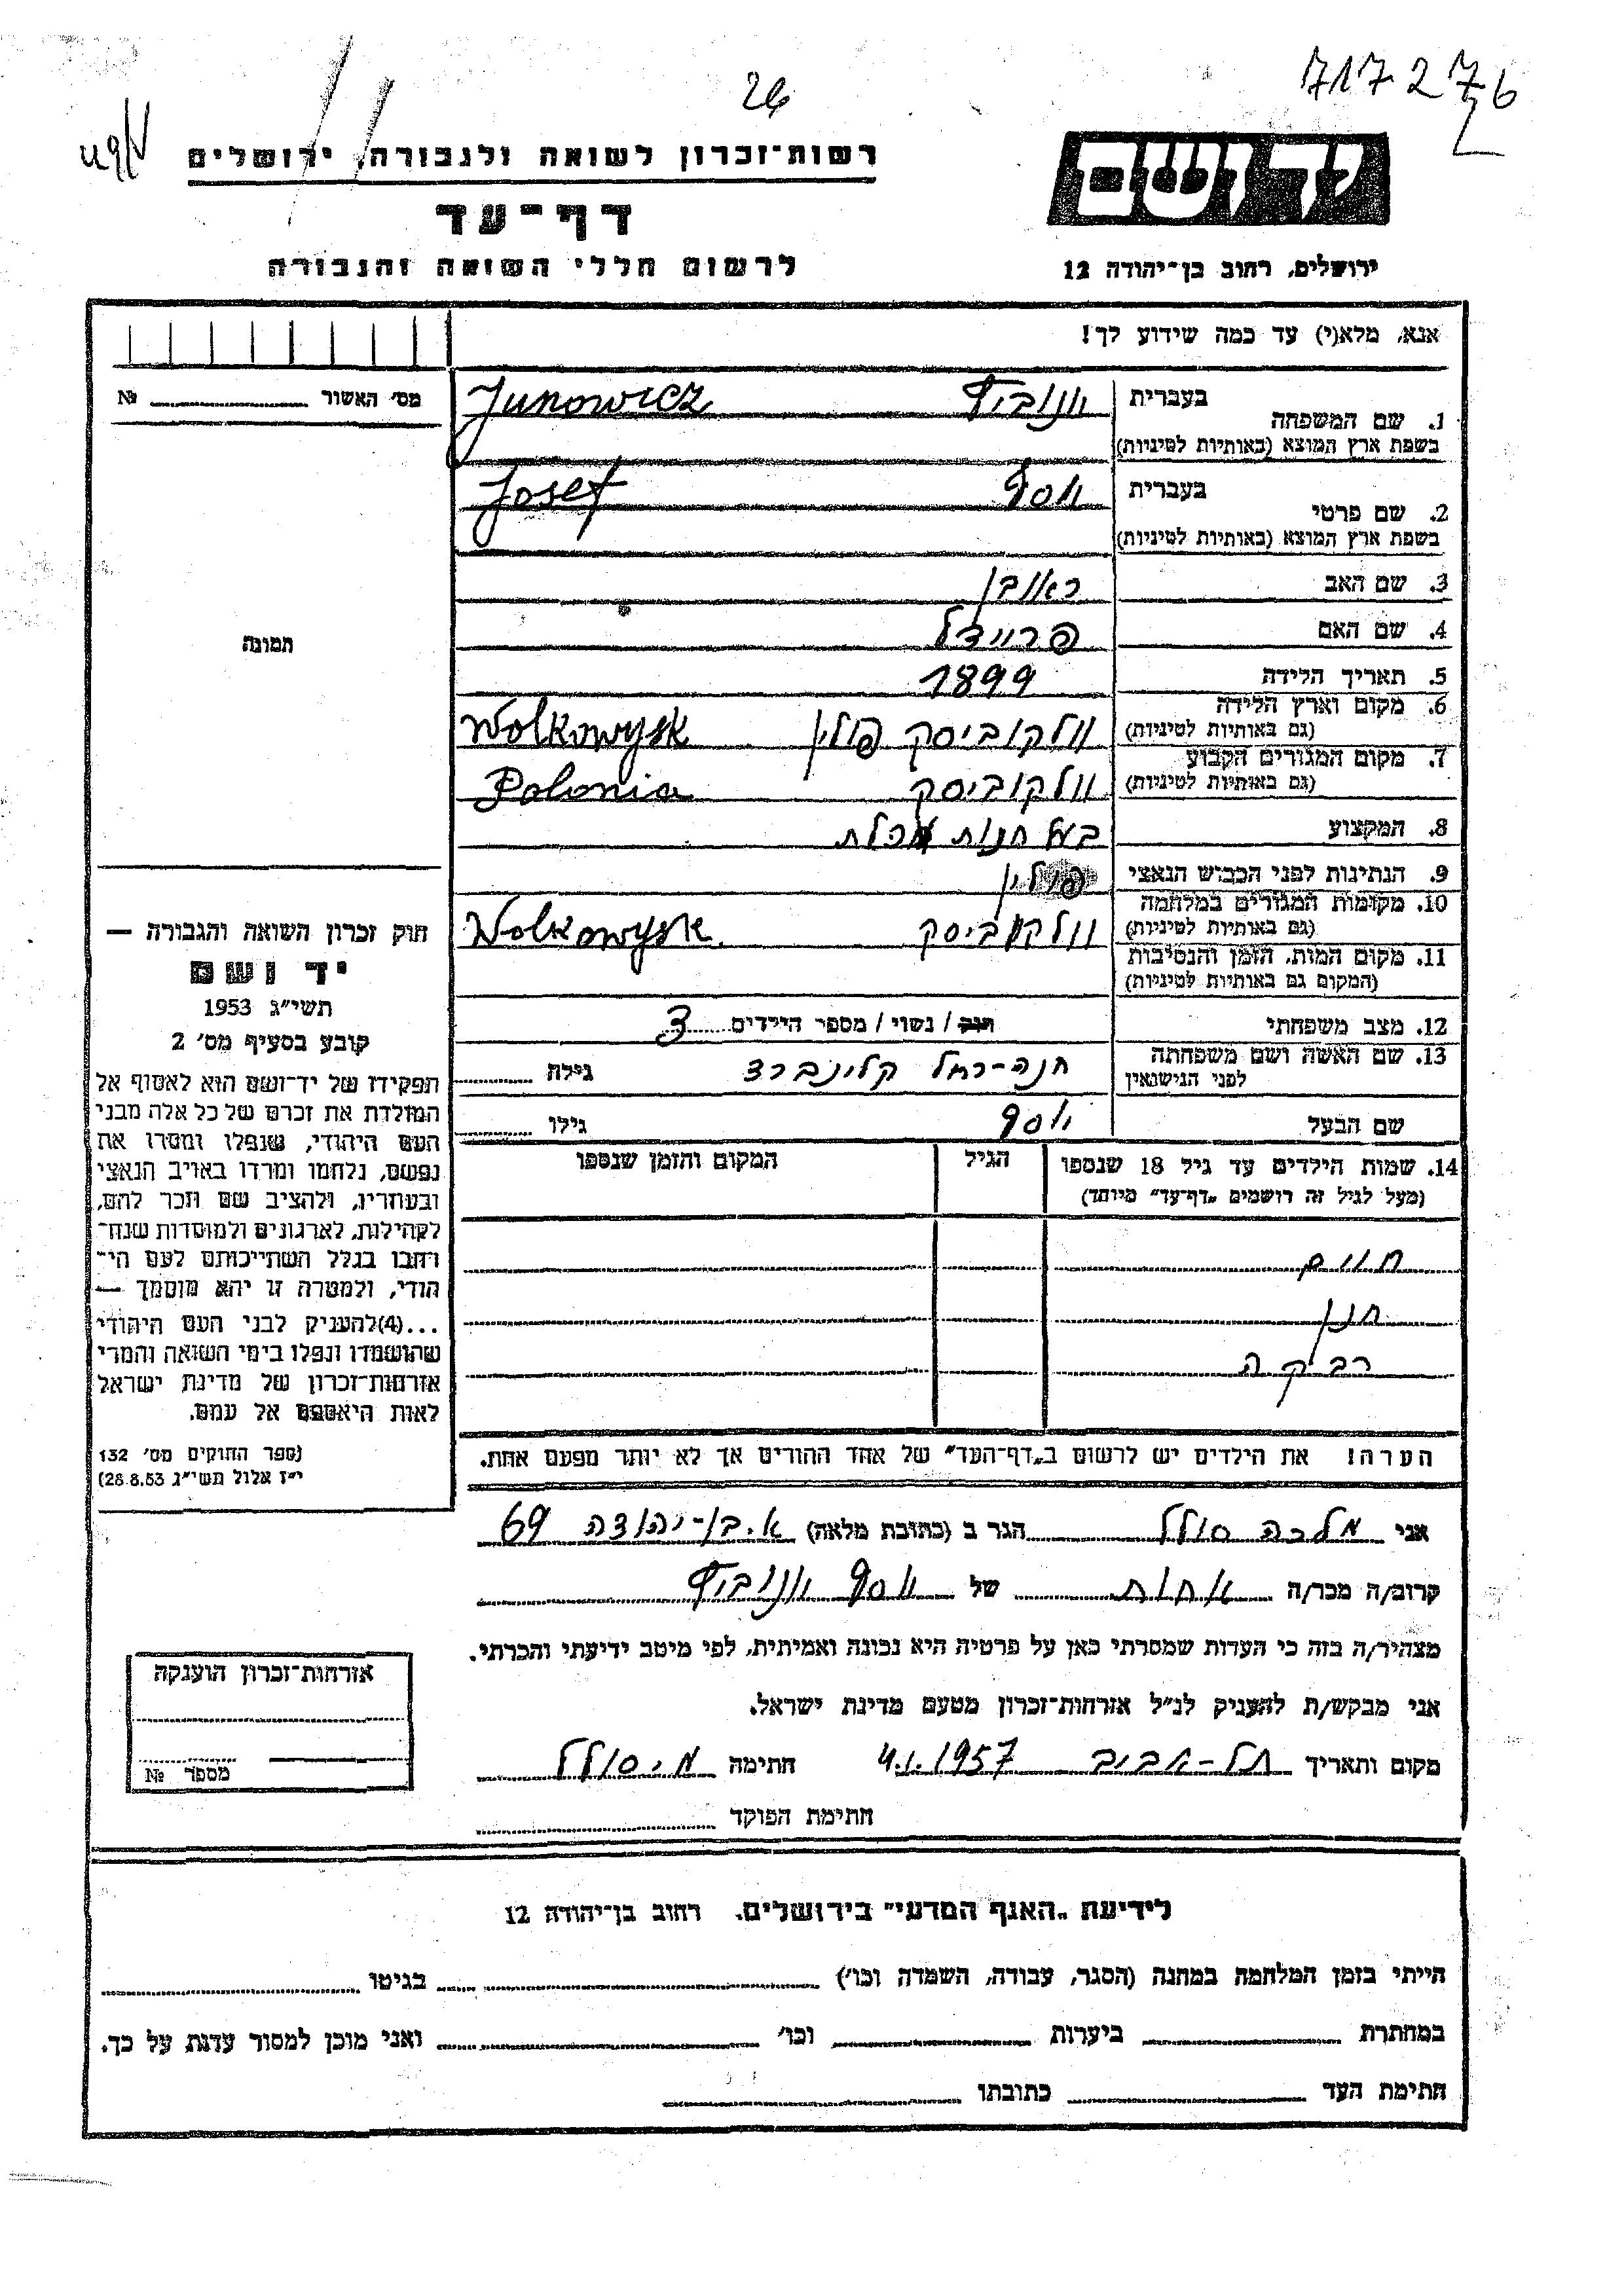 717276
26
רשות־זכרון לשואה ולגבורה, ירושלים
יד ושם
דף־עד
לרשום חללי השואה והגבורה
ירושלים, רחוב בן־יהודה 12
אנא, מלא(י) עד כמה שידוע לך!
מס׳ האשור № 
1. שם המשפחה בעברית יונוביץ Junowicz
בשפת ארץ המוצא (באותיות לטיניות)
2. שם פרטי בעברית יוסף Josef
בשפת ארץ המוצא (באותיות לטיניות)
3. שם האב ראובן
4. שם האם פריידל
תמונה
5. תאריך הלידה 1899
6. מקום וארץ הלידה וולקוביסק פולין Wolkowysk
(גם באותיות לטיניות)
7. מקום המגורים הקבוע וולקוביסק Polonia
(גם באותיות לטיניות)
8. המקצוע בעל חנות מכלת
9. הנתינות לפני הכבוש הנאצי פולין
10. מקומות המגורים במלחמה וולקוביסק Wolkowysk
(גם באותיות לטיניות)
11. מקום המות, הזמן והנסיבות
(המקום גם באותיות לטיניות)
12. מצב משפחתי רוק / נשוי / מספר הילדים 3
13. שם האשה ושם משפחתה חנה-רחל קלינברד גילה
לפני הנישואין
שם הבעל יוסף גילו
14. שמות הילדים עד גיל 18 שנספו הגיל המקום והזמן שנספו
(מעל לגיל זה רושמים „דף־עד״ מיוחד)
חיים
חנן
רבקה
הערה! את הילדים יש לרשום ב„דף־העד״ של אחד ההורים אך לא יותר מפעם אחת.
חוק זכרון השואה והגבורה —
יד ושם
תשי״ג 1953
קובע בסעיף מס׳ 2
תפקידו של יד־ושם הוא לאסוף אל
המולדת את זכרם של כל אלה מבני
העם היהודי, שנפלו ומסרו את
נפשם, נלחמו ומרדו באויב הנאצי
ובעוזריו, ולהציב שם וזכר להם,
לקהילות, לארגונים ולמוסדות שנח־
רבו בגלל השתייכותם לעם הי־
הודי, ולמטרה זו יהא מוסמך —
...(4)להעניק לבני העם היהודי
שהושמדו ונפלו בימי השואה והמרי
אזרחות־זכרון של מדינת ישראל
לאות היאספם אל עמם.
(ספר החוקים מס׳ 132
י״ז אלול תשי״ג 28.8.53)
אני מלכה סולל הגר ב (כתובת מלאה) א.בן-יהודה 69
קרוב/ה מכר/ה אחות של יוסף יונוביץ
מצהיר/ה בזה כי העדות שמסרתי כאן על פרטיה היא נכונה ואמיתית, לפי מיטב ידיעתי והכרתי.
אני מבקש/ת להעניק לנ״ל אזרחות־זכרון מטעם מדינת ישראל.
מקום ותאריך תל-אביב 4.1.1957 חתימה מ. סולל
חתימת הפוקד
אזרחות־זכרון הוענקה
מספר №
לידיעת „האגף המדעי״ בירושלים. רחוב בן־יהודה 12
הייתי בזמן המלחמה במחנה (הסגר, עבודה, השמדה וכו׳) בגיטו
במחתרת ביערות וכו׳ ואני מוכן למסור עדות על כך.
חתימת העד כתובתו